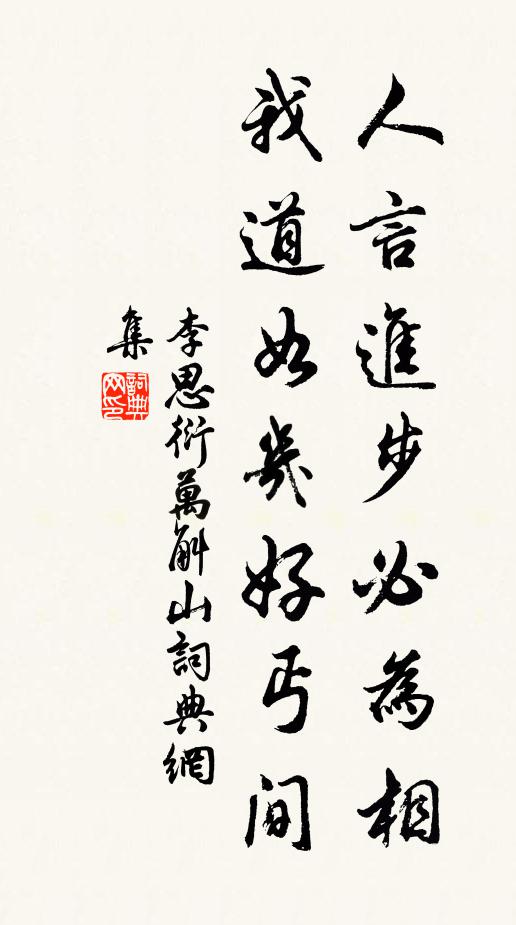 人言進步必為相
我道知幾好丐間
李思衍萬斛山詞典網
集
詞典
网印